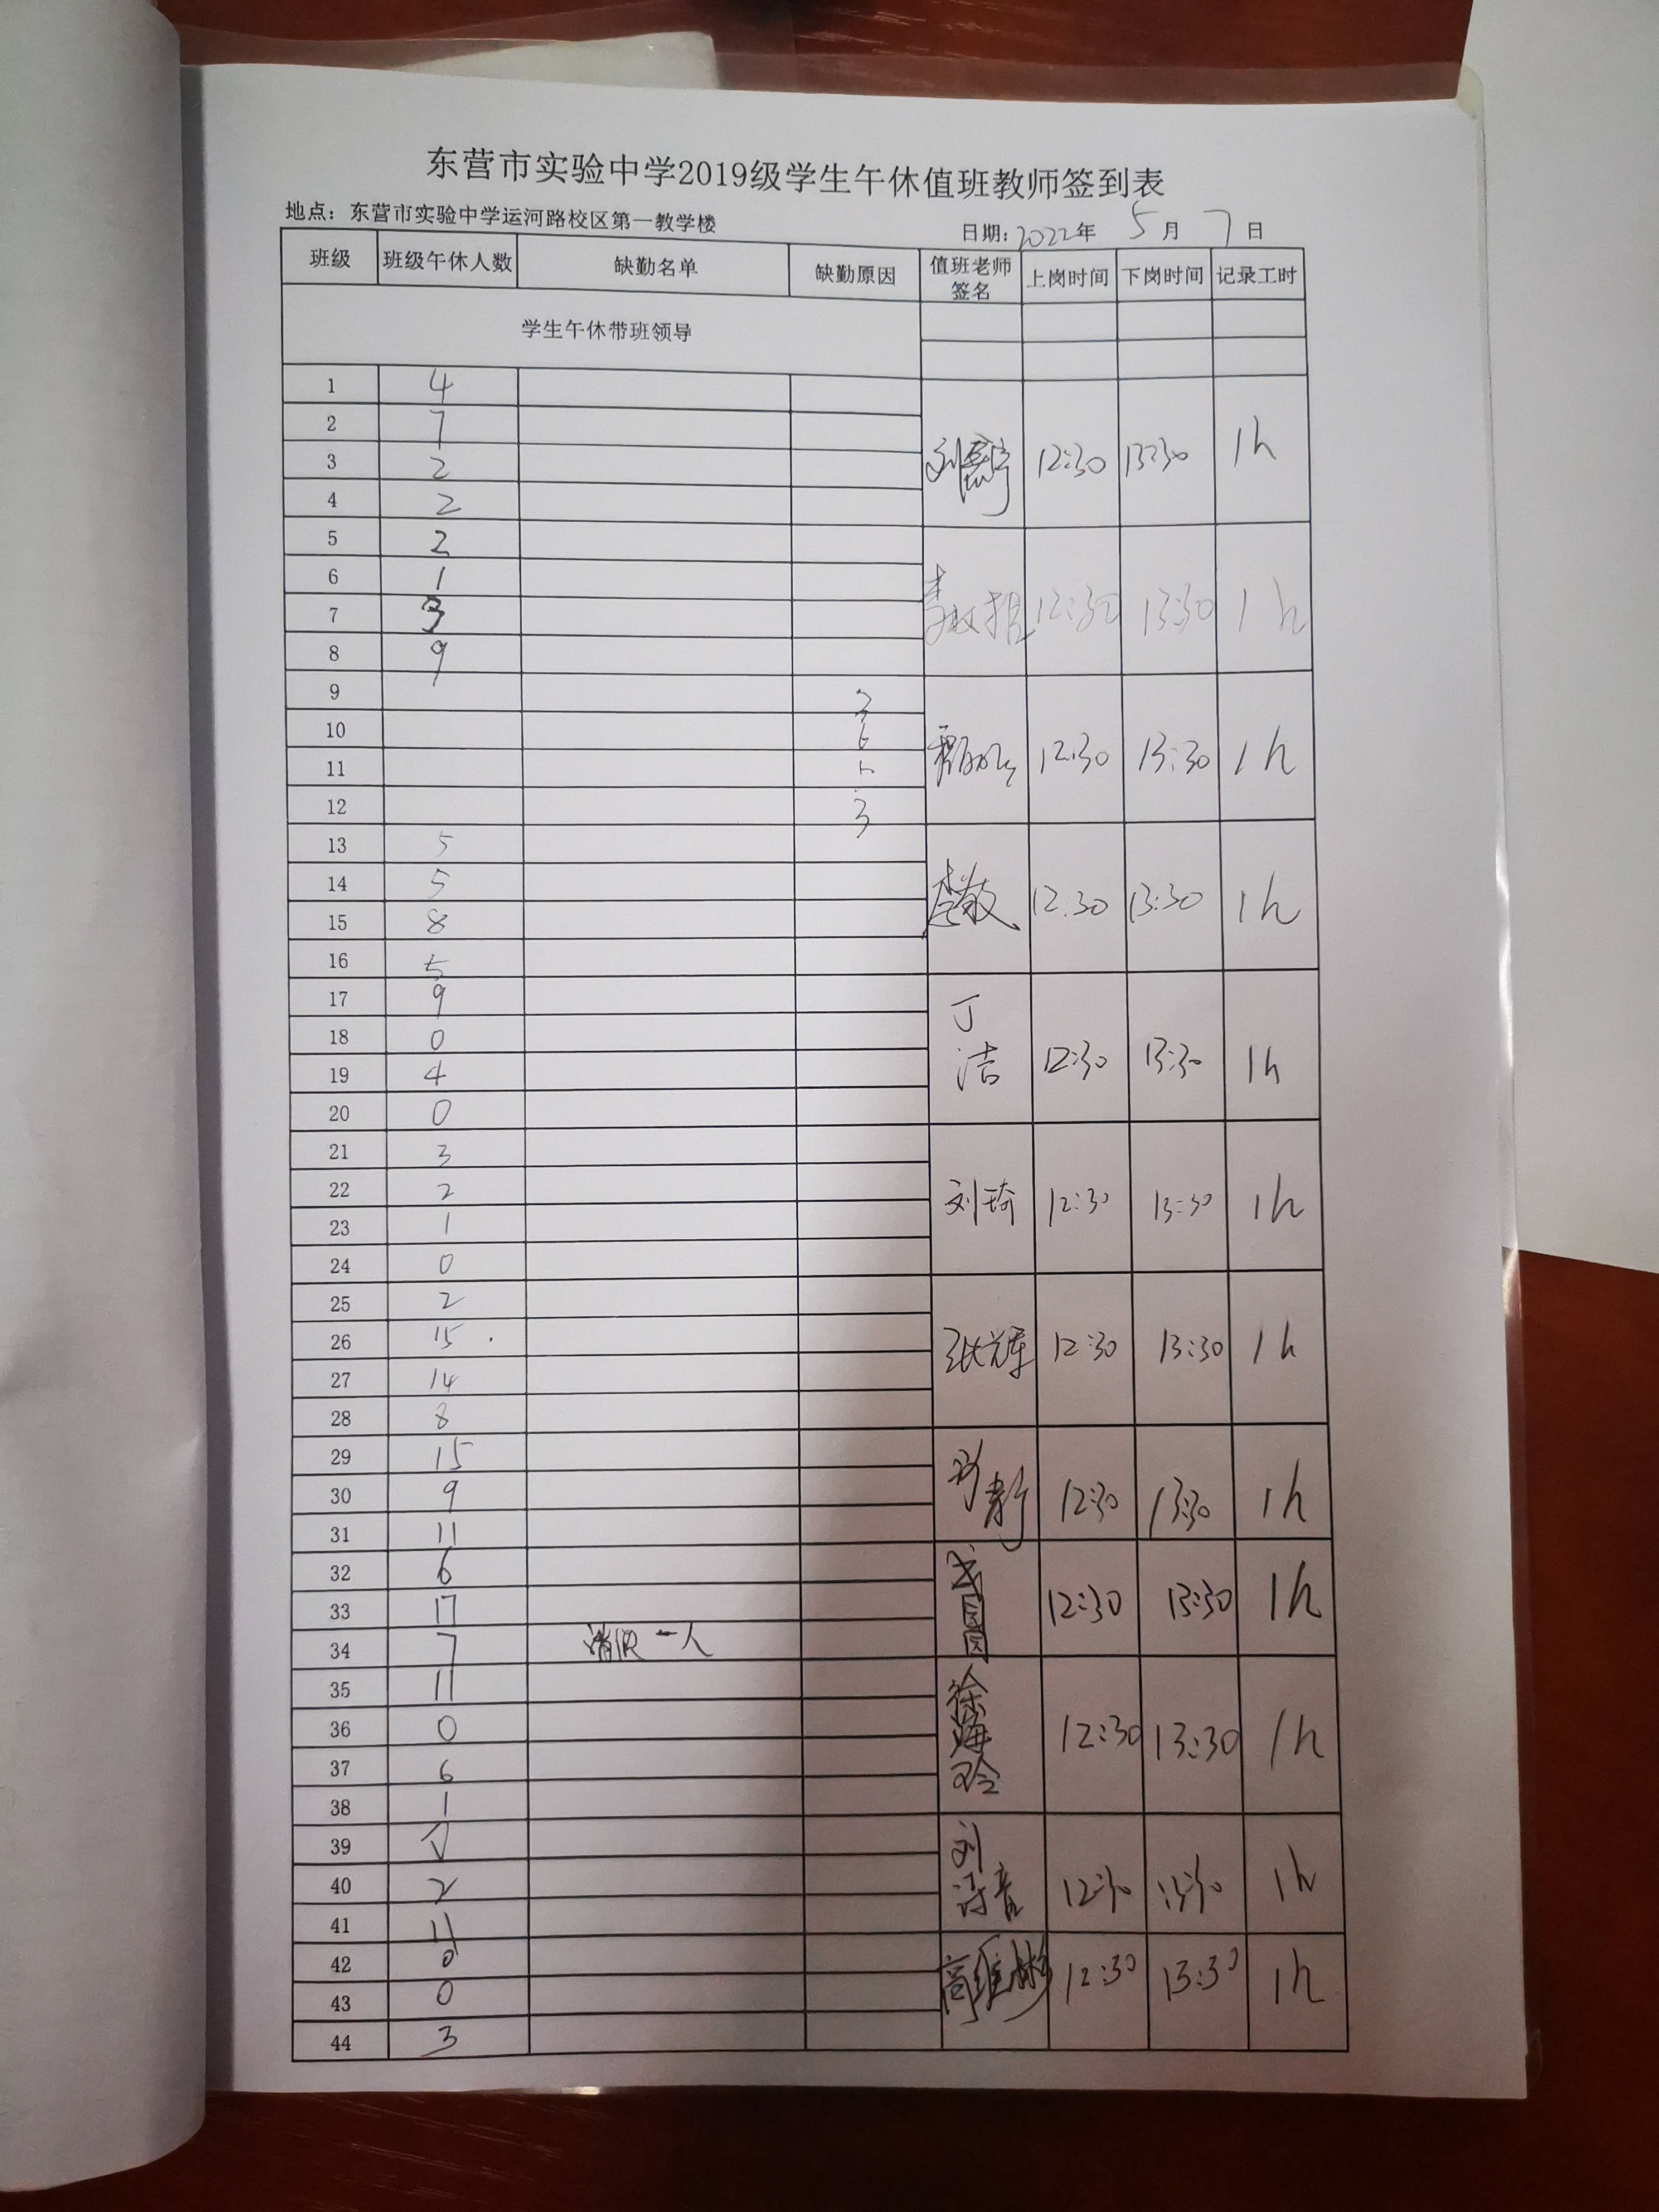 东营市实验中学2019级学生午休值班教师签到表
地点：东营市实验中学运河路校区第一教学楼 日期：2022年 5月 7日
班级 班级午休人数 缺勤名单 缺勤原因 值班老师签名 上岗时间 下岗时间 记录工时
学生午休带班领导
1 4
2 7
3 2 12:30 13:30 1h
4 2
5 2
6 1
7 3 12:30 13:30 1h
8 9
9
10 6
11 12:30 13:30 1h
12 3
13 5
14 5
15 8 李敏 12:30 13:30 1h
16 5
17 9
18 0
19 4 丁洁 12:30 13:30 1h
20 0
21 3
22 2 刘琦 12:30 13:30 1h
23 1
24 0
25 2
26 15 张辉 12:30 13:30 1h
27 14
28 8
29 15
30 9 12:30 13:30 1h
31 11
32 6
33 17 12:30 13:30 1h
34 7 一人
35 11
36 0 徐海玲 12:30 13:30 1h
37 6
38 1
39
40 2 刘诗音 12:30 13:30 1h
41 11
42 0
43 0 高维彬 12:30 13:30 1h
44 3